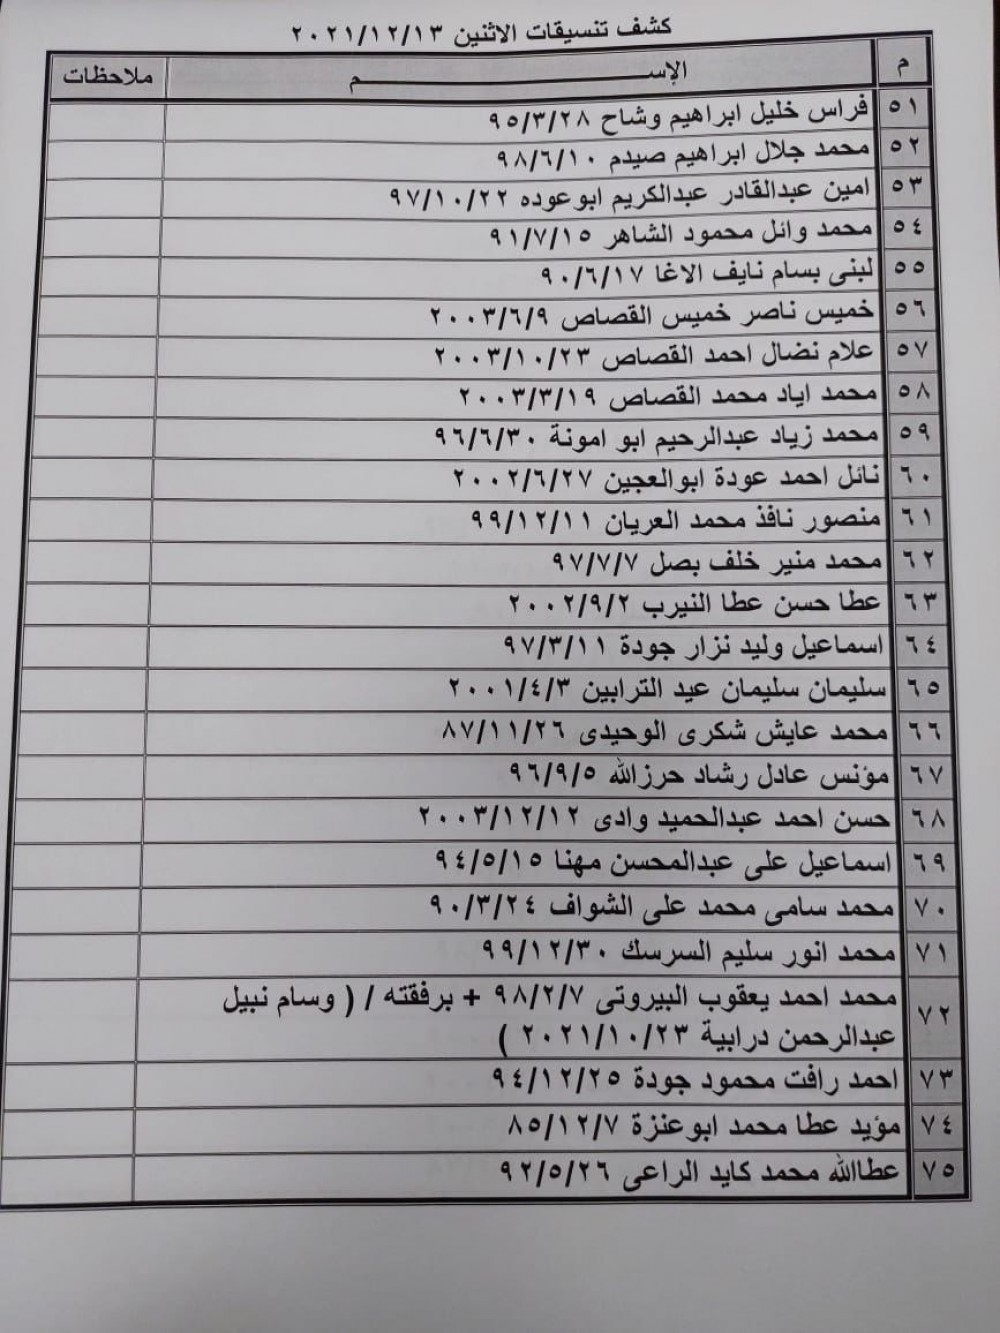 كشف تنسيقات الاثنين ٢٠٢١/١٢/١٣
م الإســـــم ملاحظات
٥١ فراس خليل ابراهيم وشاح ٩٥/٣/٢٨
٥٢ محمد جلال ابراهيم صيدم ٩٨/٦/١٠
٥٣ امين عبدالقادر عبدالكريم ابوعوده ٩٧/١٠/٢٢
٥٤ محمد وائل محمود الشاهر ٩١/٧/١٥
٥٥ لبنى بسام نايف الاغا ٩٠/٦/١٧
٥٦ خميس ناصر خميس القصاص ٢٠٠٣/٦/٩
٥٧ علام نضال احمد القصاص ٢٠٠٣/١٠/٢٣
٥٨ محمد اياد محمد القصاص ٢٠٠٣/٣/١٩
٥٩ محمد زياد عبدالرحيم ابو امونة ٩٦/٦/٣٠
٦٠ نائل احمد عودة ابوالعجين ٢٠٠٢/٦/٢٧
٦١ منصور نافذ محمد العريان ٩٩/١٢/١١
٦٢ محمد منير خلف بصل ٩٧/٧/٧
٦٣ عطا حسن عطا النيرب ٢٠٠٢/٩/٢
٦٤ اسماعيل وليد نزار جودة ٩٧/٣/١١
٦٥ سليمان سليمان عيد الترابين ٢٠٠١/٤/٣
٦٦ محمد عايش شكرى الوحيدى ٨٧/١١/٢٦
٦٧ مؤنس عادل رشاد حرزالله ٩٦/٩/٥
٦٨ حسن احمد عبدالحميد وادى ٢٠٠٣/١٢/١٢
٦٩ اسماعيل على عبدالمحسن مهنا ٩٤/٥/١٥
٧٠ محمد سامى محمد على الشواف ٩٠/٣/٢٤
٧١ محمد انور سليم السرسك ٩٩/١٢/٣٠
٧٢ محمد احمد يعقوب البيروتى ٩٨/٢/٧ + برفقته / ( وسام نبيل
عبدالرحمن درابية ٢٠٢١/١٠/٢٣ )
٧٣ احمد رافت محمود جودة ٩٤/١٢/٢٥
٧٤ مؤيد عطا محمد ابوعنزة ٨٥/١٢/٧
٧٥ عطاالله محمد كايد الراعى ٩٢/٥/٢٦